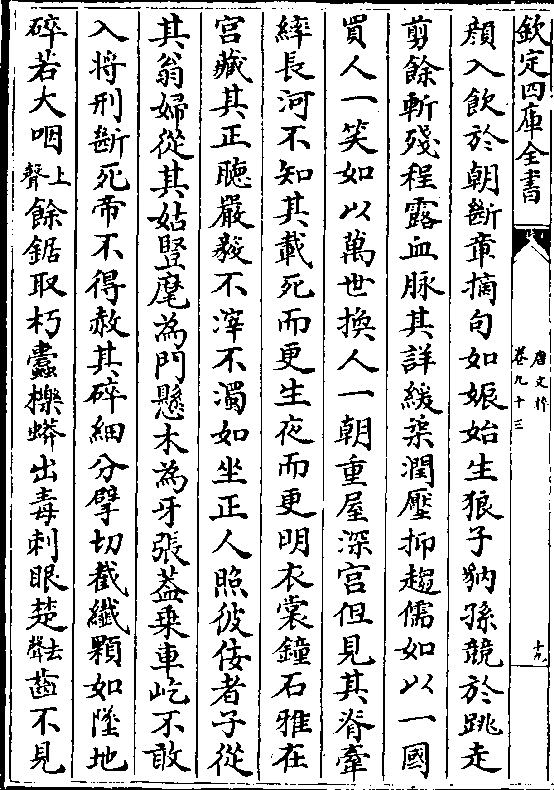 欽定四庫全書
唐文粹
卷九十三
十九
顔入飲於朝斷章摘句如娠始生狼子豽孫競於跳走
剪餘斬殘程露血脉其詳緩柒潤壓抑趨儒如以一國
買人一笑如以萬世換人一朝重屋深宫但見其脊牽
縴長河不知其載死而更生夜而更明衣裳鐘石雅在
宫藏其正聴嚴毅不滓不濁如坐正人照彼佞者子從
其翁婦從其姑竪麾為門懸木為牙張葢乗車屹不敢
入將刑斷死帝不得赦其碎細分擘切截纎顆如墜地
碎若大咽上聲餘鋸取朽蠧櫟蟒出毒刺眼楚去聲齒不見